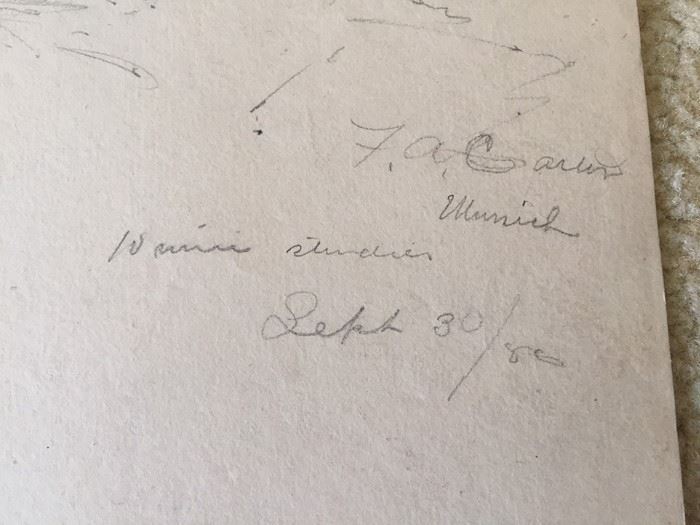 F. A. Carter
Munich
10 min studies
Sept 30/80